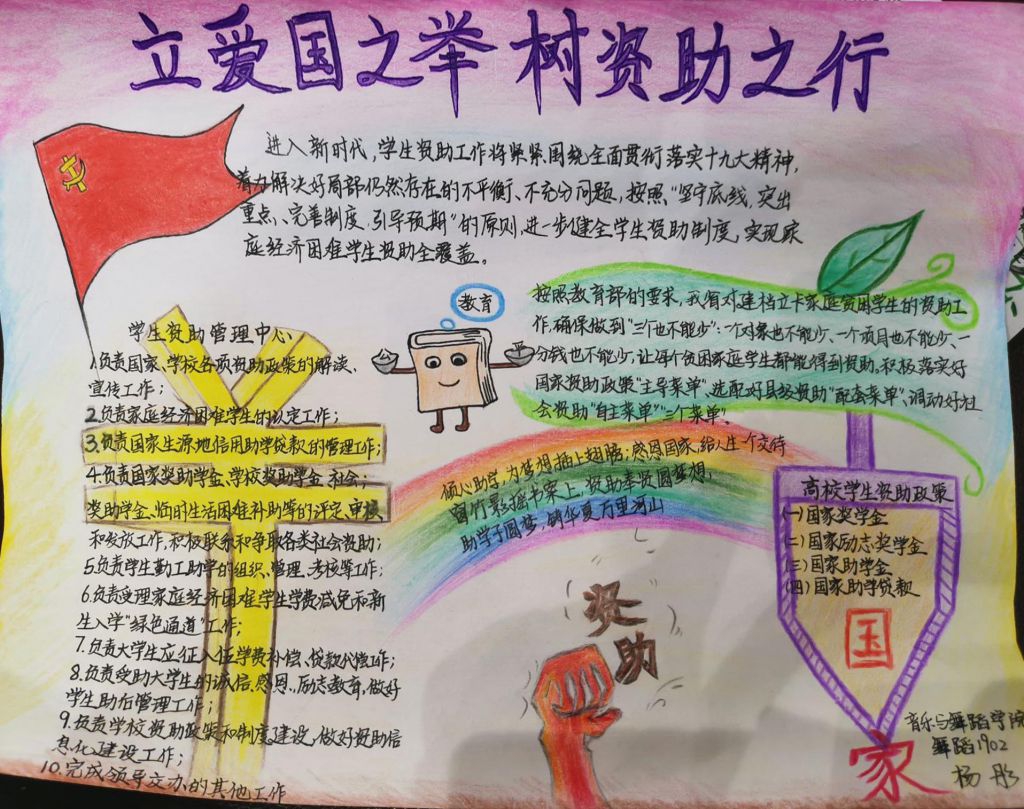 立爱国之举 树资助之行
进入新时代,学生资助工作将紧紧围绕全面贯彻落实十九大精神,
着力解决好局部仍然存在的不平衡、不充分问题,按照“坚守底线,突出
重点、完善制度、引导预期”的原则,进一步健全学生资助制度,实现家
庭经济困难学生资助全覆盖。
学生资助管理中心
1.负责国家、学校各项资助政策的解读、
宣传工作;
2.负责家庭经济困难学生的认定工作;
3.负责国家生源地信用助学贷款的管理工作;
4.负责国家奖助学金、学校奖助学金、社会;
奖助学金、临时生活困难补助等的评定、审核
和发放工作,积极联系和争取各类社会资助;
5.负责学生勤工助学的组织、管理、考核等工作;
6.负责受理家庭经济困难学生学费减免和新
生入学“绿色通道”工作;
7.负责大学生应征入伍学费补偿、贷款代偿工作;
8.负责受助大学生的诚信、感恩、励志教育,做好
学生助后管理工作;
9.负责学校资助政策和制度建设,做好资助信
息化建设工作;
10.完成领导交办的其他工作
教育
按照教育部的要求,我省对建档立卡家庭贫困学生的资助工
作,确保做到“三个也不能少”:一个对象也不能少、一个项目也不能少、一
分钱也不能少,让每个贫困家庭学生都能得到资助。积极落实好
国家资助政策“主导菜单”、选配好县级资助“配套菜单”、调动好社
会资助“自主菜单”“三个菜单”。
倾心助学,为梦想插上翅膀;感恩国家,给人生一个交待
窗竹影摇书案上,资助奉贤圆梦想,
助学子圆梦,铸华夏万里河山
资助
高校学生资助政策
(一)国家奖学金
(二)国家励志奖学金
(三)国家助学金
(四)国家助学贷款
国
家
音乐与舞蹈学院
舞蹈1902
杨彤